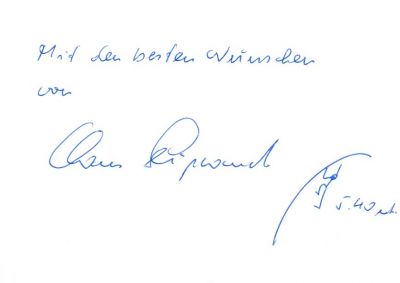 Mit den besten Wünschen
von
Claus Schiprowski
5.40 m